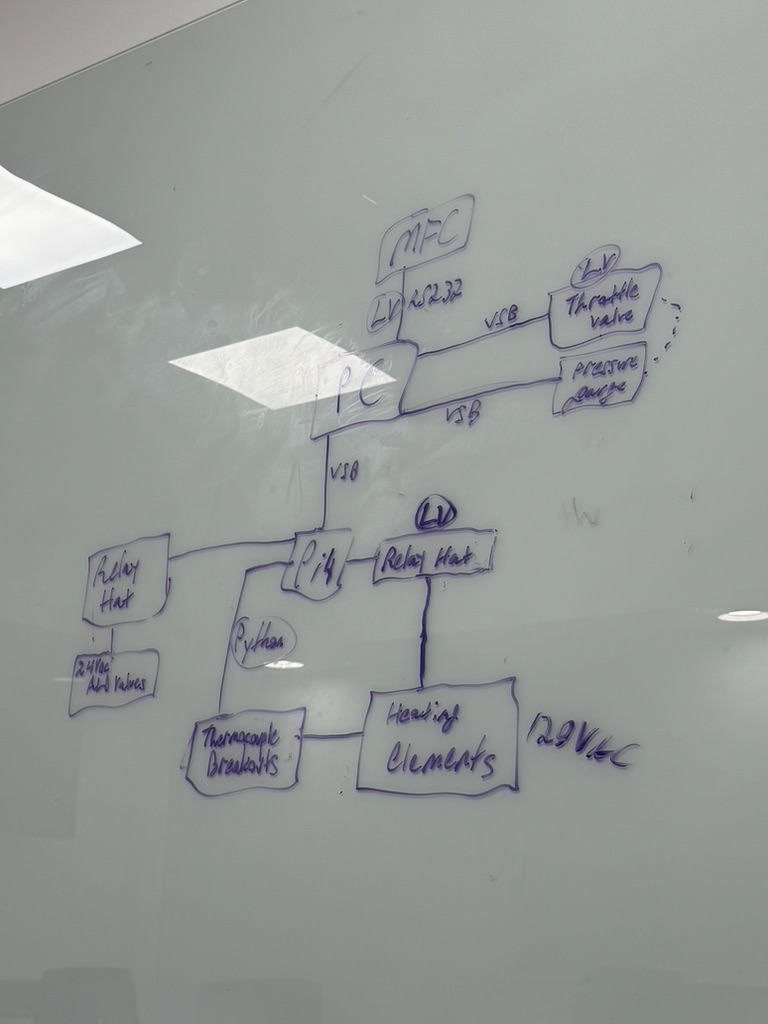 MFC
LV
RS232
LV
Throttle
valve
USB
PC
Pressure
Gauge
USB
USB
LV
Relay
Hat
Pi4
Relay Hat
Python
24VDC
ALD Valves
Thermocouple
Breakouts
Heating
Elements
120VAC